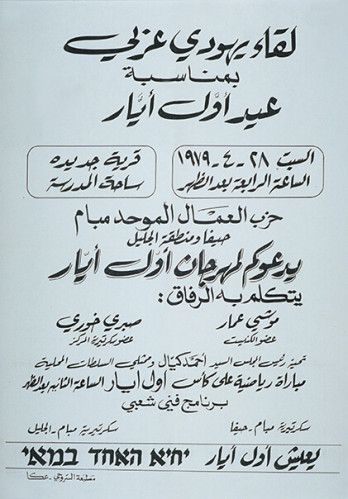 لقاء يهودي عربي
بمناسبة
عيد أول أيار
السبت ٢٨-٤-١٩٧٩
الساعة الرابعة بعد الظهر
قرية جديده
ساحة المدرسة
حزب العمال الموحد مبام
حيفا ومنطقة الجليل
يدعوكم لمهرجان أول أيار
يتكلم به الرفاق :
موشي عمار
عضو الكنيست
صبري خوري
عضو سكرتيرية المركز
تحية رئيس المجلس السيد احمد كيال وممثلي السلطات المحلية
مباراة رياضية على كأس أول ايار الساعة الثانية بعد الظهر
برنامج فني شعبي
سكرتيرية مبام - حيفا
سكرتيرية مبام - الجليل
يعيش أول أيار יחיא האחד במאי
مطبعة السروجي - عكا